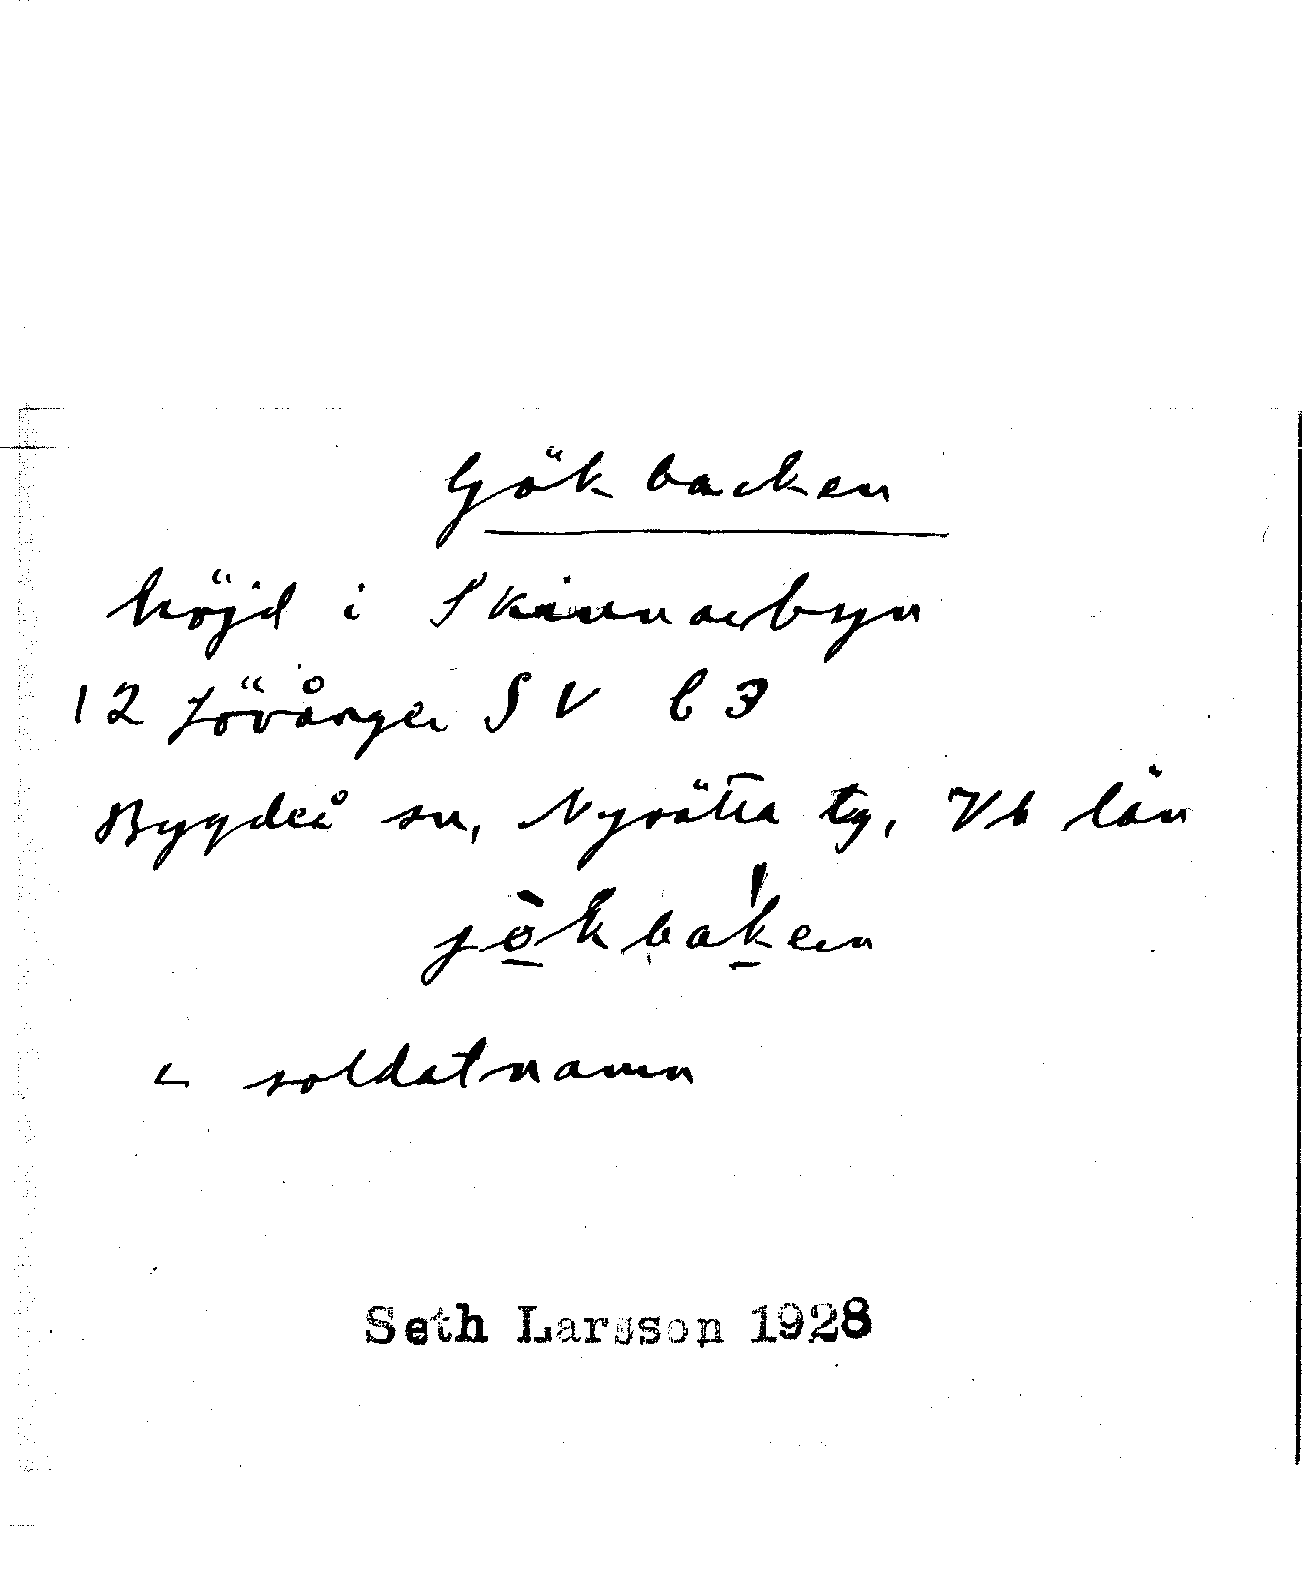 Gökbacken
höjd i Skinnarbyn
12 Lövånger SV b3
Bygdeå sn, Nysätra tg, Vb län
jökbaken
< soldatnamn
Seth Larsson 1928